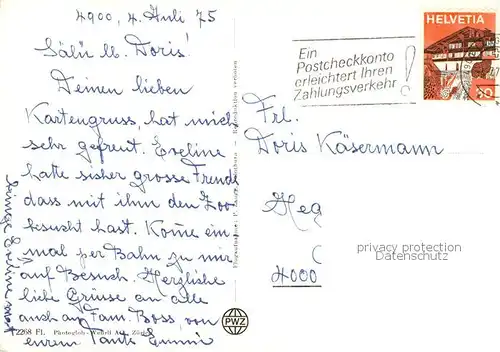 4900, 4. Juli 75
Salü ll. Doris!
Deinen lieben
Kartengruss, hat mich
sehr gefreut. Eveline
hatte sicher grosse Freude
dass mit ihm den Zoo
besucht hast. Kome ein-
mal per Bahn zu mir
auf Besuch. Herzliche
liebe Grüsse an alle
auch an Fam. Boss, von
eurem Tante Emmi
bringe Eveline mit
HELVETIA
Ein
Postcheckkonto
erleichtert Ihren
Zahlungsverkehr !
Frl.
Doris Käsermann
4000
privacy protection
2268 Fl. Photoglob-Wehrli AG, Zürich
PWZ
Reproduktion verboten